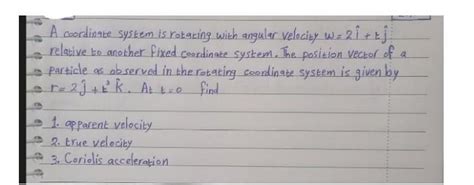 A coordinate system is rotating with angular velocity w = 2î + tĵ
relative to another fixed coordinate system. The position vector of a
particle as observed in the rotating coordinate system is given by
r = 2ĵ + t²k̂. At t=0 find
1. apparent velocity
2. true velocity
3. Coriolis acceleration